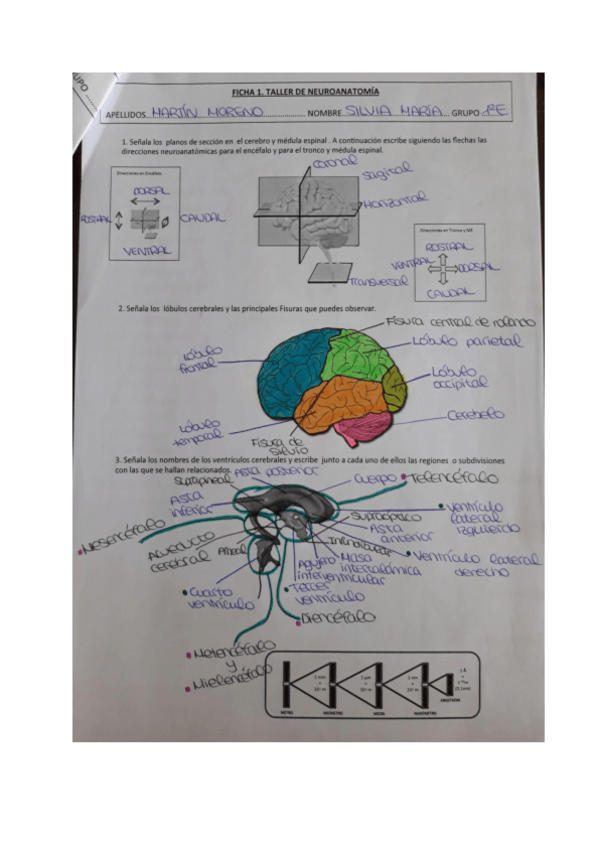 UPO ........
FICHA 1. TALLER DE NEUROANATOMÍA
APELLIDOS MARTÍN MORENO .................. NOMBRE SILVIA MARÍA ... GRUPO 1ºE
1. Señala los planos de sección en el cerebro y médula espinal . A continuación escribe siguiendo las flechas las
direcciones neuroanatómicas para el encéfalo y para el tronco y médula espinal.
Direcciones en Encéfalo
DORSAL
ROSTRAL
CAUDAL
VENTRAL
Coronal
Sagital
Horizontal
Transversal
Direcciones en Tronco y ME
ROSTRAL
VENTRAL
DORSAL
CAUDAL
2. Señala los lóbulos cerebrales y las principales Fisuras que puedes observar.
Fisura central de rolando
Lóbulo parietal
Lóbulo
frontal
Lóbulo
occipital
Lóbulo
temporal
Cerebelo
Fisura de
Silvio
3. Señala los nombres de los ventrículos cerebrales y escribe junto a cada uno de ellos las regiones o subdivisiones
con las que se hallan relacionados.
Asta posterior
Suprapineal
Cuerpo
Telencéfalo
Asta
inferior
Ventrículo
lateral
izquierdo
Supraóptico
Asta
anterior
Mesencéfalo
Acueducto
cerebral
Infundibular
Agujero
interventricular
Masa
intertalámica
Ventrículo lateral
derecho
Cuarto
ventrículo
Tercer
ventrículo
Diencéfalo
Metencéfalo
y
Mielencéfalo
METRO
MILÍMETRO
MICRA
NANÓMETRO
ANGSTROM